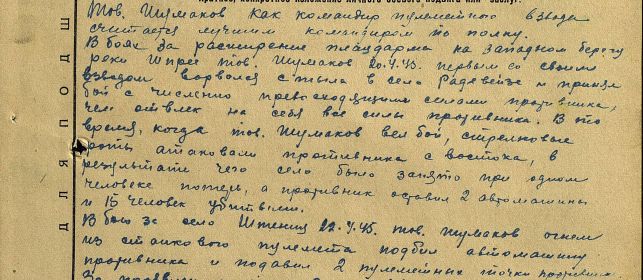 Краткое, конкретное изложение личного боевого подвига или заслуг.
ДЛЯ ПОДШ
Тов. Шумаков как командир пулеметного взвода
считается лучшим командиром по полку.
В боях за расширение плацдарма на западном берегу
реки Шпрее тов. Шумаков 20.4.45. первым со своим
взводом ворвался с тыла в село Радевейзе и принял
бой с численно превосходящими силами противника,
чем отвлек на себя все силы противника. В то
время, когда тов. Шумаков вел бой, стрелковые
роты атаковали противника с востока, в
результате чего село было занято при одном
человеке потерь, а противник оставил 2 автомашины
и 15 человек убитыми.
В бою за село 22.4.45. тов. Шумаков огнем
из станкового пулемета подбил автомашину
противника и подавил 2 пулеметных точки противника.